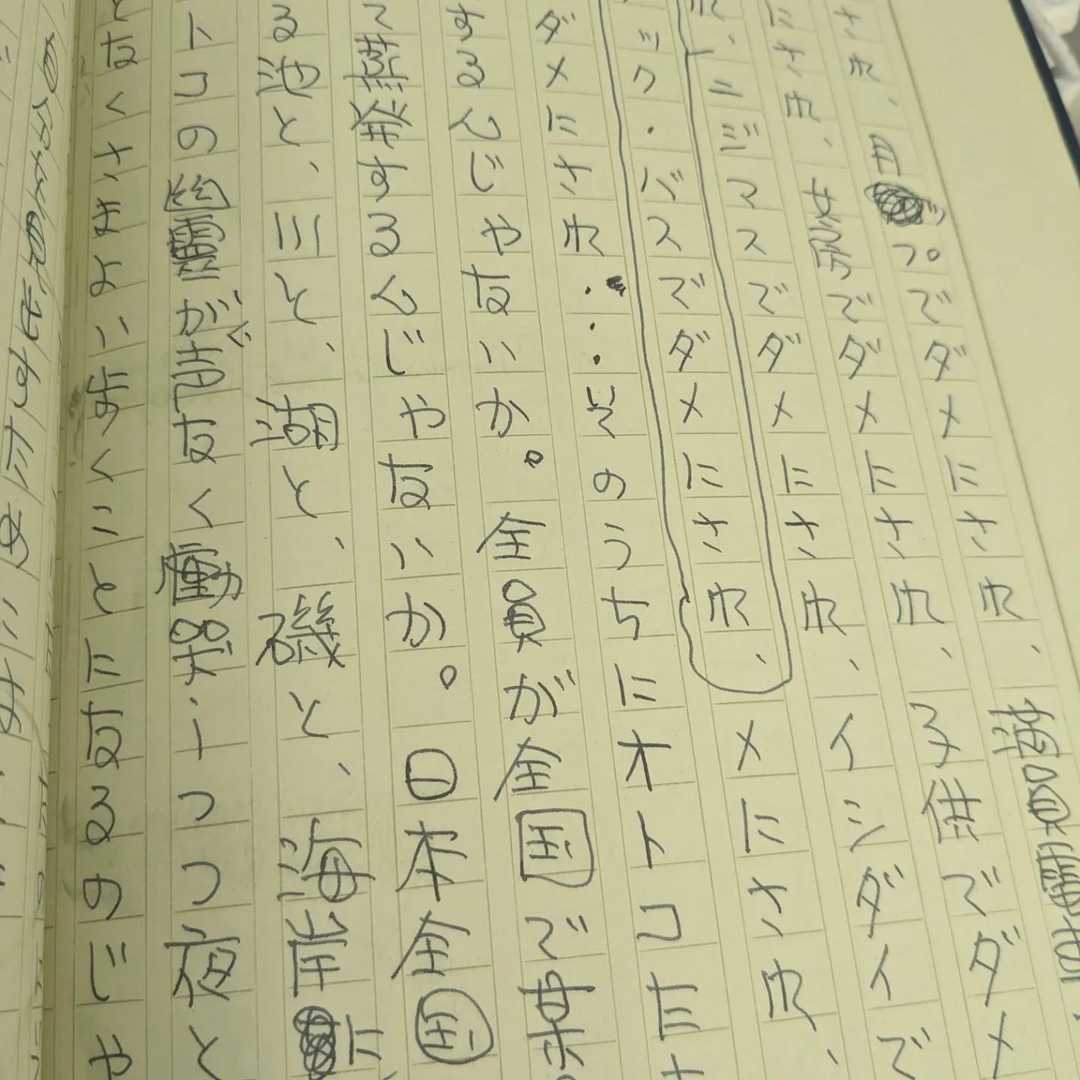 され、プでダメにされ、
にされ、女房でダメにされ、子供でダメ
れ、ニジマスでダメにされ、イシダイで
ック・バスでダメにされ、メにされ、
ダメにされ……そのうちにオトコた
するんじゃないか。全員が全国で
て蒸発するんじゃないか。日本全国
る池と、川と、湖と、磯と、海岸に
トコの幽霊が声なく慟哭しつつ夜と
となくさまよい歩くことになるのじゃ